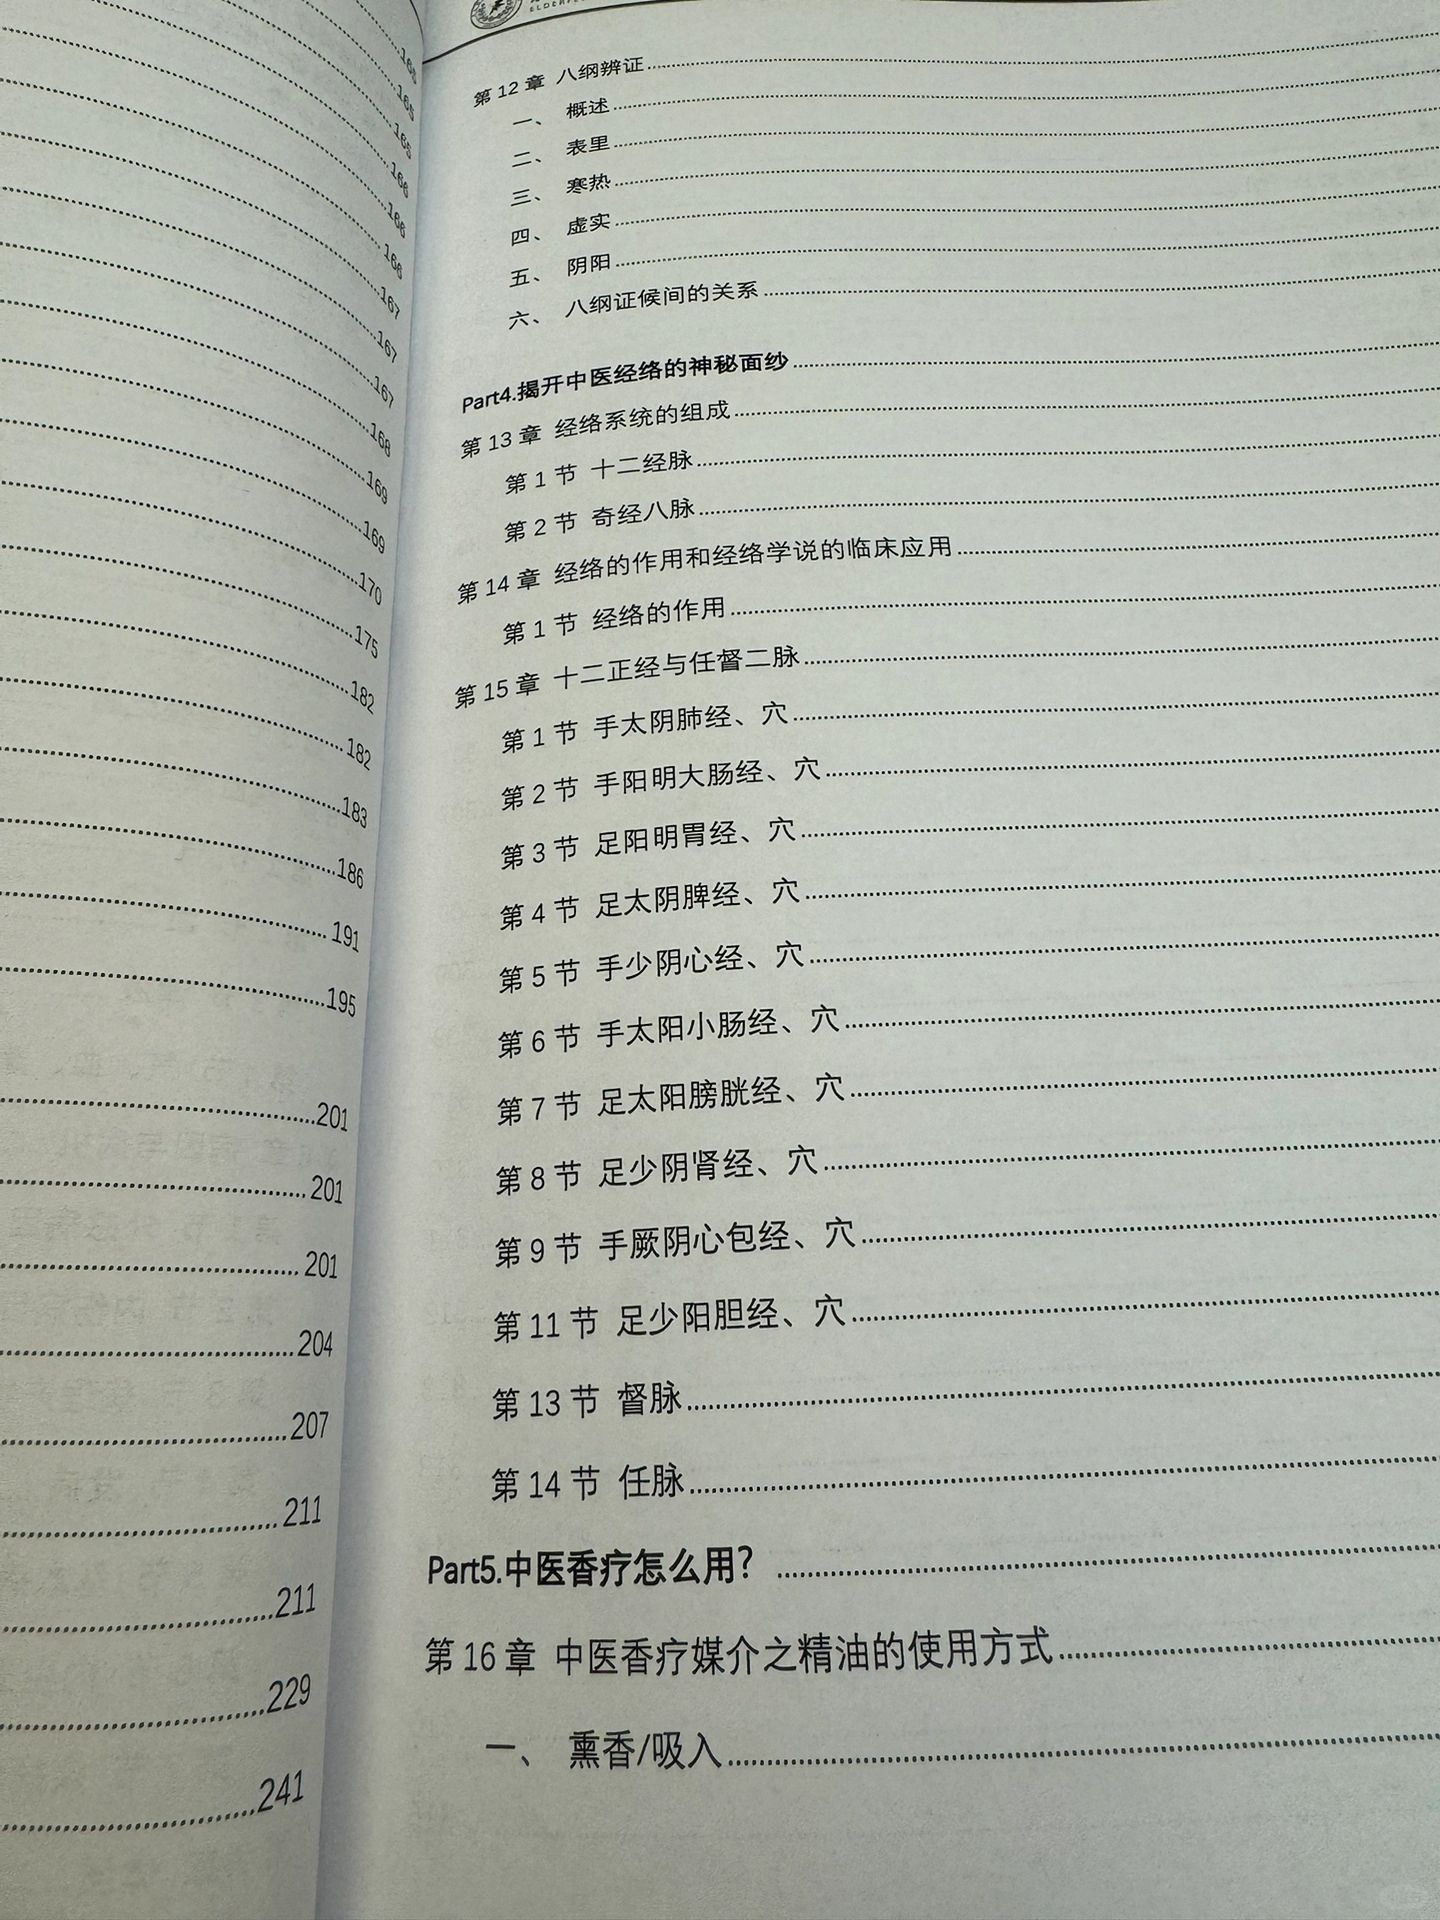 165
165
165
166
166
166
167
167
167
168
169
169
170
175
182
182
183
186
191
195
201
201
201
204
207
211
211
229
241
第 12 章 八纲辨证
一、 概述
二、 表里
三、 寒热
四、 虚实
五、 阴阳
六、 八纲证候间的关系
Part4.揭开中医经络的神秘面纱
第 13 章 经络系统的组成
第 1 节 十二经脉
第 2 节 奇经八脉
第 14 章 经络的作用和经络学说的临床应用
第 1 节 经络的作用
第 15 章 十二正经与任督二脉
第 1 节 手太阴肺经、穴
第 2 节 手阳明大肠经、穴
第 3 节 足阳明胃经、穴
第 4 节 足太阴脾经、穴
第 5 节 手少阴心经、穴
第 6 节 手太阳小肠经、穴
第 7 节 足太阳膀胱经、穴
第 8 节 足少阴肾经、穴
第 9 节 手厥阴心包经、穴
第 11 节 足少阳胆经、穴
第 13 节 督脉
第 14 节 任脉
Part5.中医香疗怎么用?
第 16 章 中医香疗媒介之精油的使用方式
一、 熏香/吸入